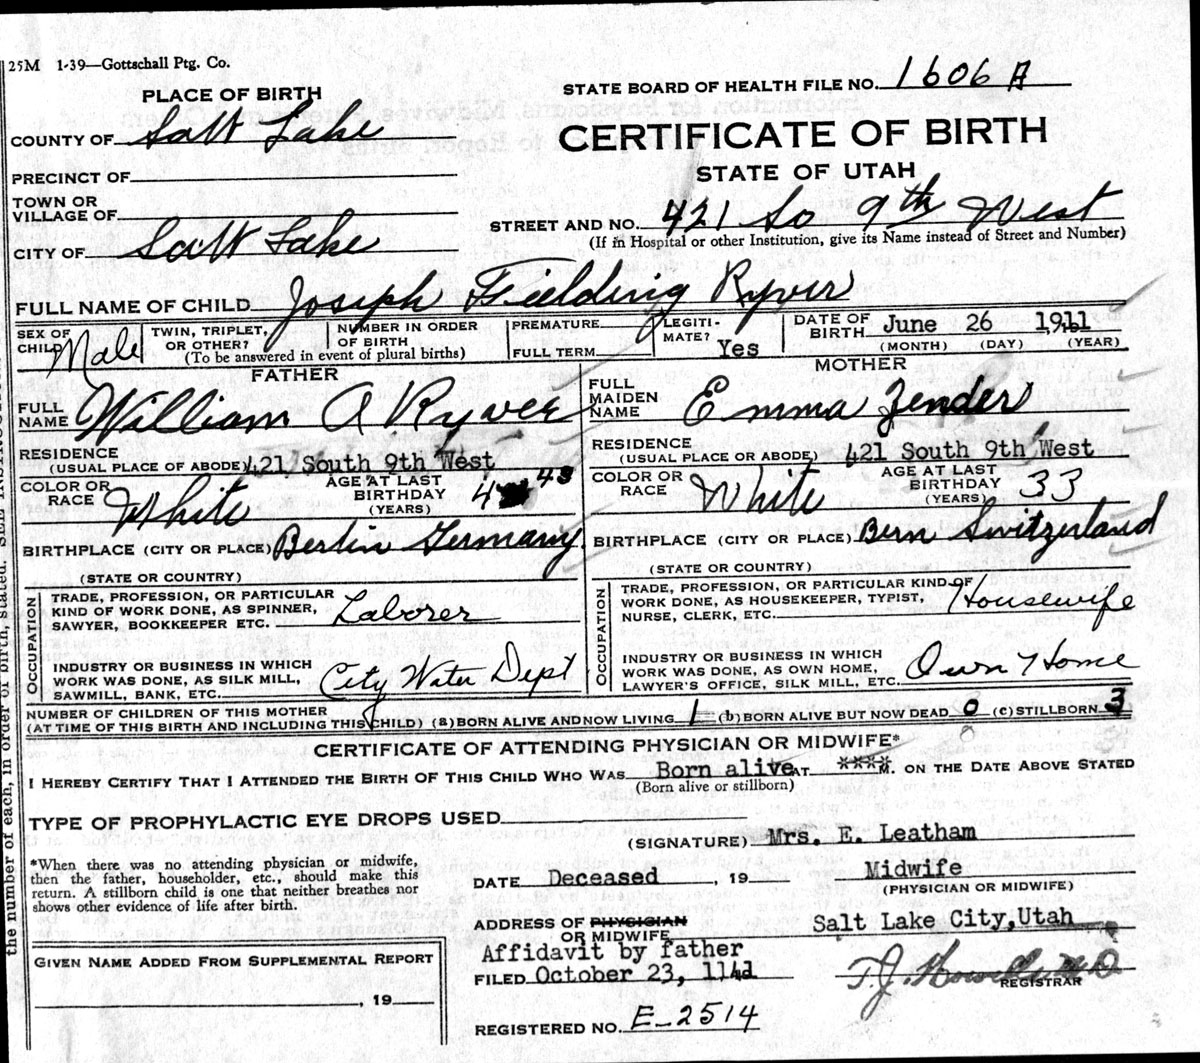 25M 1-39—Gottschall Ptg. Co.
STATE BOARD OF HEALTH FILE NO. 1606 A
PLACE OF BIRTH
COUNTY OF Salt Lake
CERTIFICATE OF BIRTH
PRECINCT OF
STATE OF UTAH
TOWN OR
VILLAGE OF
STREET AND NO. 421 So 9th West
(If in Hospital or other Institution, give its Name instead of Street and Number)
CITY OF Salt Lake
FULL NAME OF CHILD Joseph Fielding Ryver
SEX OF CHILD Male
TWIN, TRIPLET, OR OTHER?
NUMBER IN ORDER OF BIRTH
(To be answered in event of plural births)
PREMATURE
FULL TERM
LEGITI-
MATE? Yes
DATE OF BIRTH June 26, 1911
(MONTH) (DAY) (YEAR)
FATHER
FULL NAME William A Ryver
RESIDENCE
(USUAL PLACE OF ABODE) 421 South 9th West
COLOR OR RACE White
AGE AT LAST BIRTHDAY (YEARS) 43
BIRTHPLACE (CITY OR PLACE) Berlin Germany
(STATE OR COUNTRY)
OCCUPATION
TRADE, PROFESSION, OR PARTICULAR
KIND OF WORK DONE, AS SPINNER,
SAWYER, BOOKKEEPER ETC. Laborer
INDUSTRY OR BUSINESS IN WHICH
WORK WAS DONE, AS SILK MILL,
SAWMILL, BANK, ETC. City Water Dept
MOTHER
FULL MAIDEN NAME Emma Zender
RESIDENCE
(USUAL PLACE OR ABODE) 421 South 9th West
COLOR OR RACE White
AGE AT LAST BIRTHDAY (YEARS) 33
BIRTHPLACE (CITY OR PLACE) Bern Switzerland
(STATE OR COUNTRY)
OCCUPATION
TRADE, PROFESSION, OR PARTICULAR KIND OF
WORK DONE, AS HOUSEKEEPER, TYPIST,
NURSE, CLERK, ETC. Housewife
INDUSTRY OR BUSINESS IN WHICH
WORK WAS DONE, AS OWN HOME,
LAWYER'S OFFICE, SILK MILL, ETC. Own Home
NUMBER OF CHILDREN OF THIS MOTHER
(AT TIME OF THIS BIRTH AND INCLUDING THIS CHILD) (a) BORN ALIVE AND NOW LIVING 1 (b) BORN ALIVE BUT NOW DEAD 0 (c) STILLBORN 3
CERTIFICATE OF ATTENDING PHYSICIAN OR MIDWIFE*
I HEREBY CERTIFY THAT I ATTENDED THE BIRTH OF THIS CHILD WHO WAS Born alive AT **** M. ON THE DATE ABOVE STATED
(Born alive or stillborn)
TYPE OF PROPHYLACTIC EYE DROPS USED
(SIGNATURE) Mrs. E. Leatham
*When there was no attending physician or midwife,
then the father, householder, etc., should make this
return. A stillborn child is one that neither breathes nor
shows other evidence of life after birth.
DATE Deceased 19 Midwife
(PHYSICIAN OR MIDWIFE)
ADDRESS OF PHYSICIAN OR MIDWIFE Salt Lake City, Utah
Affidavit by father
FILED October 23,
T.J. Howells MD
REGISTRAR
GIVEN NAME ADDED FROM SUPPLEMENTAL REPORT
, 19
REGISTERED NO. E-2514
the number of each, in order of birth, stated.